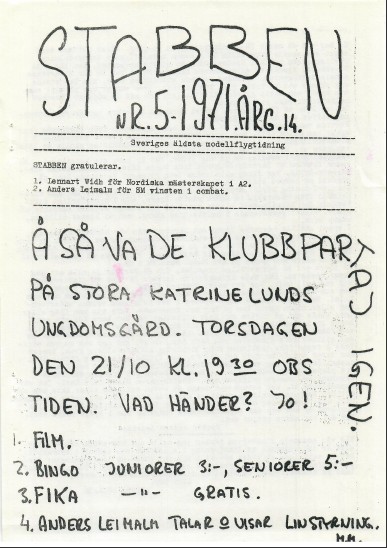 STABBEN
NR.5-1971.ÅRG.14.
Sveriges äldsta modellflygtidning
STABBEN gratulerar.
1. Lennart Widh för Nordiska mästerskapet i A2.
2. Anders Leimalm för SM vinsten i combat.
Å SÅ VA DE KLUBBPARTAJ IGEN.
PÅ STORA KATRINELUNDS
UNGDOMSGÅRD. TORSDAGEN
DEN 21/10 KL. 19 30 OBS
TIDEN. VAD HÄNDER? JO!
1. FILM.
2. BINGO JUNIORER 3:-, SENIORER 5:-
3. FIKA —"— GRATIS.
4. ANDERS LEIMALM TALAR O VISAR LINSTYRNING.
M.M.